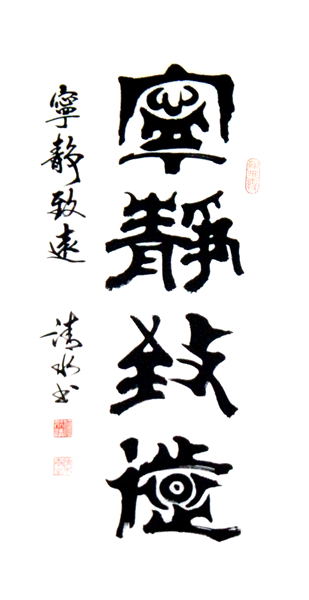 寧靜致遠
寧靜致遠 清水书